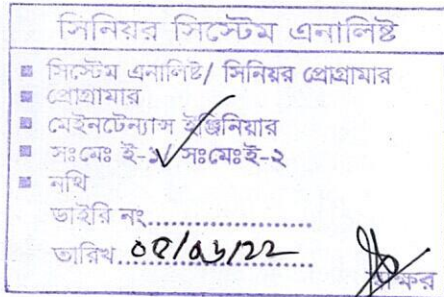 সিনিয়র সিস্টেম এনালিষ্ট
সিস্টেম এনালিষ্ট/ সিনিয়র প্রোগ্রামার
প্রোগ্রামার
মেইনটেন্যান্স ইঞ্জিনিয়ার
সঃমেঃ ই-১/ সঃমেঃই-২
নথি
ডাইরি নং
তারিখ